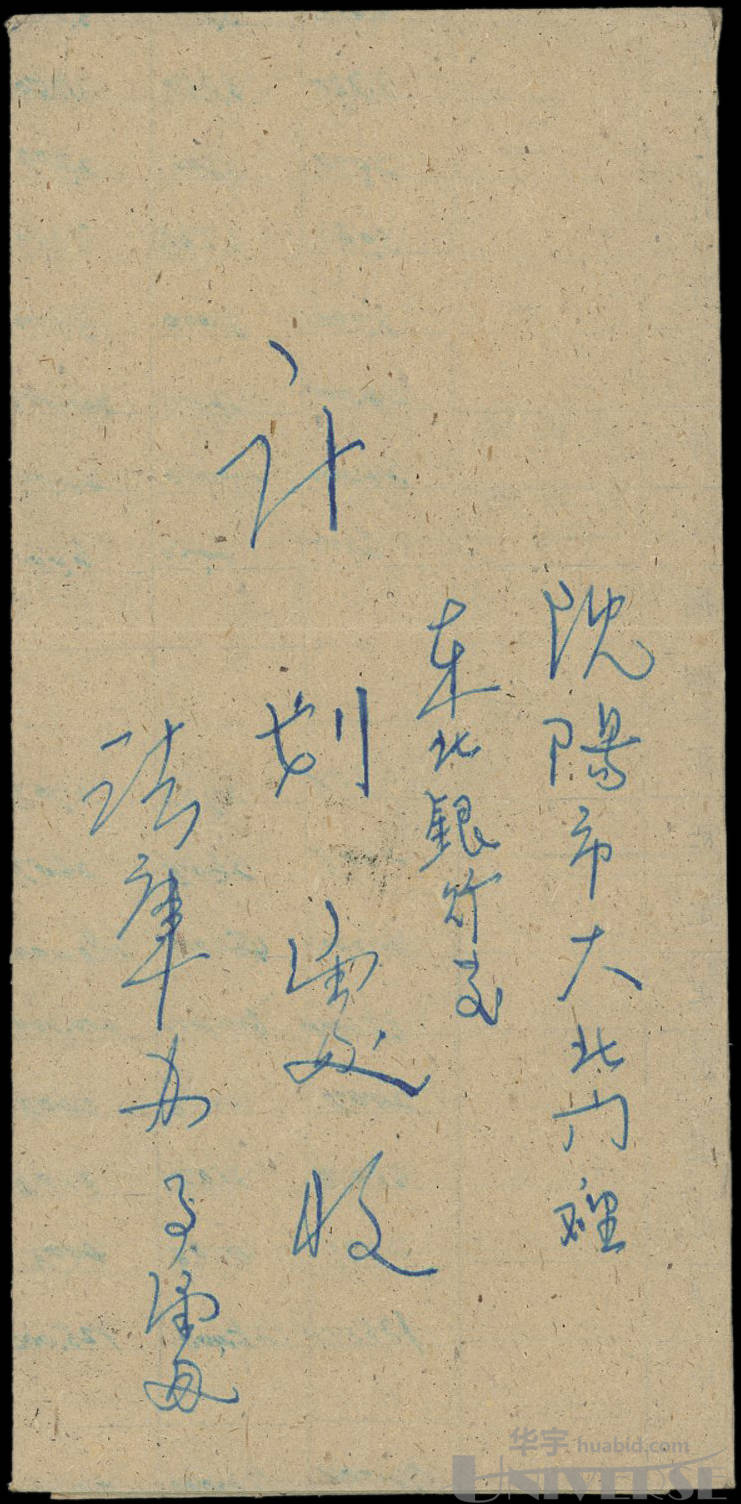 沈陽市大北门裡
东北銀行
计划處收
法庫办事處
华宇 huabid.com
UNIVERSE